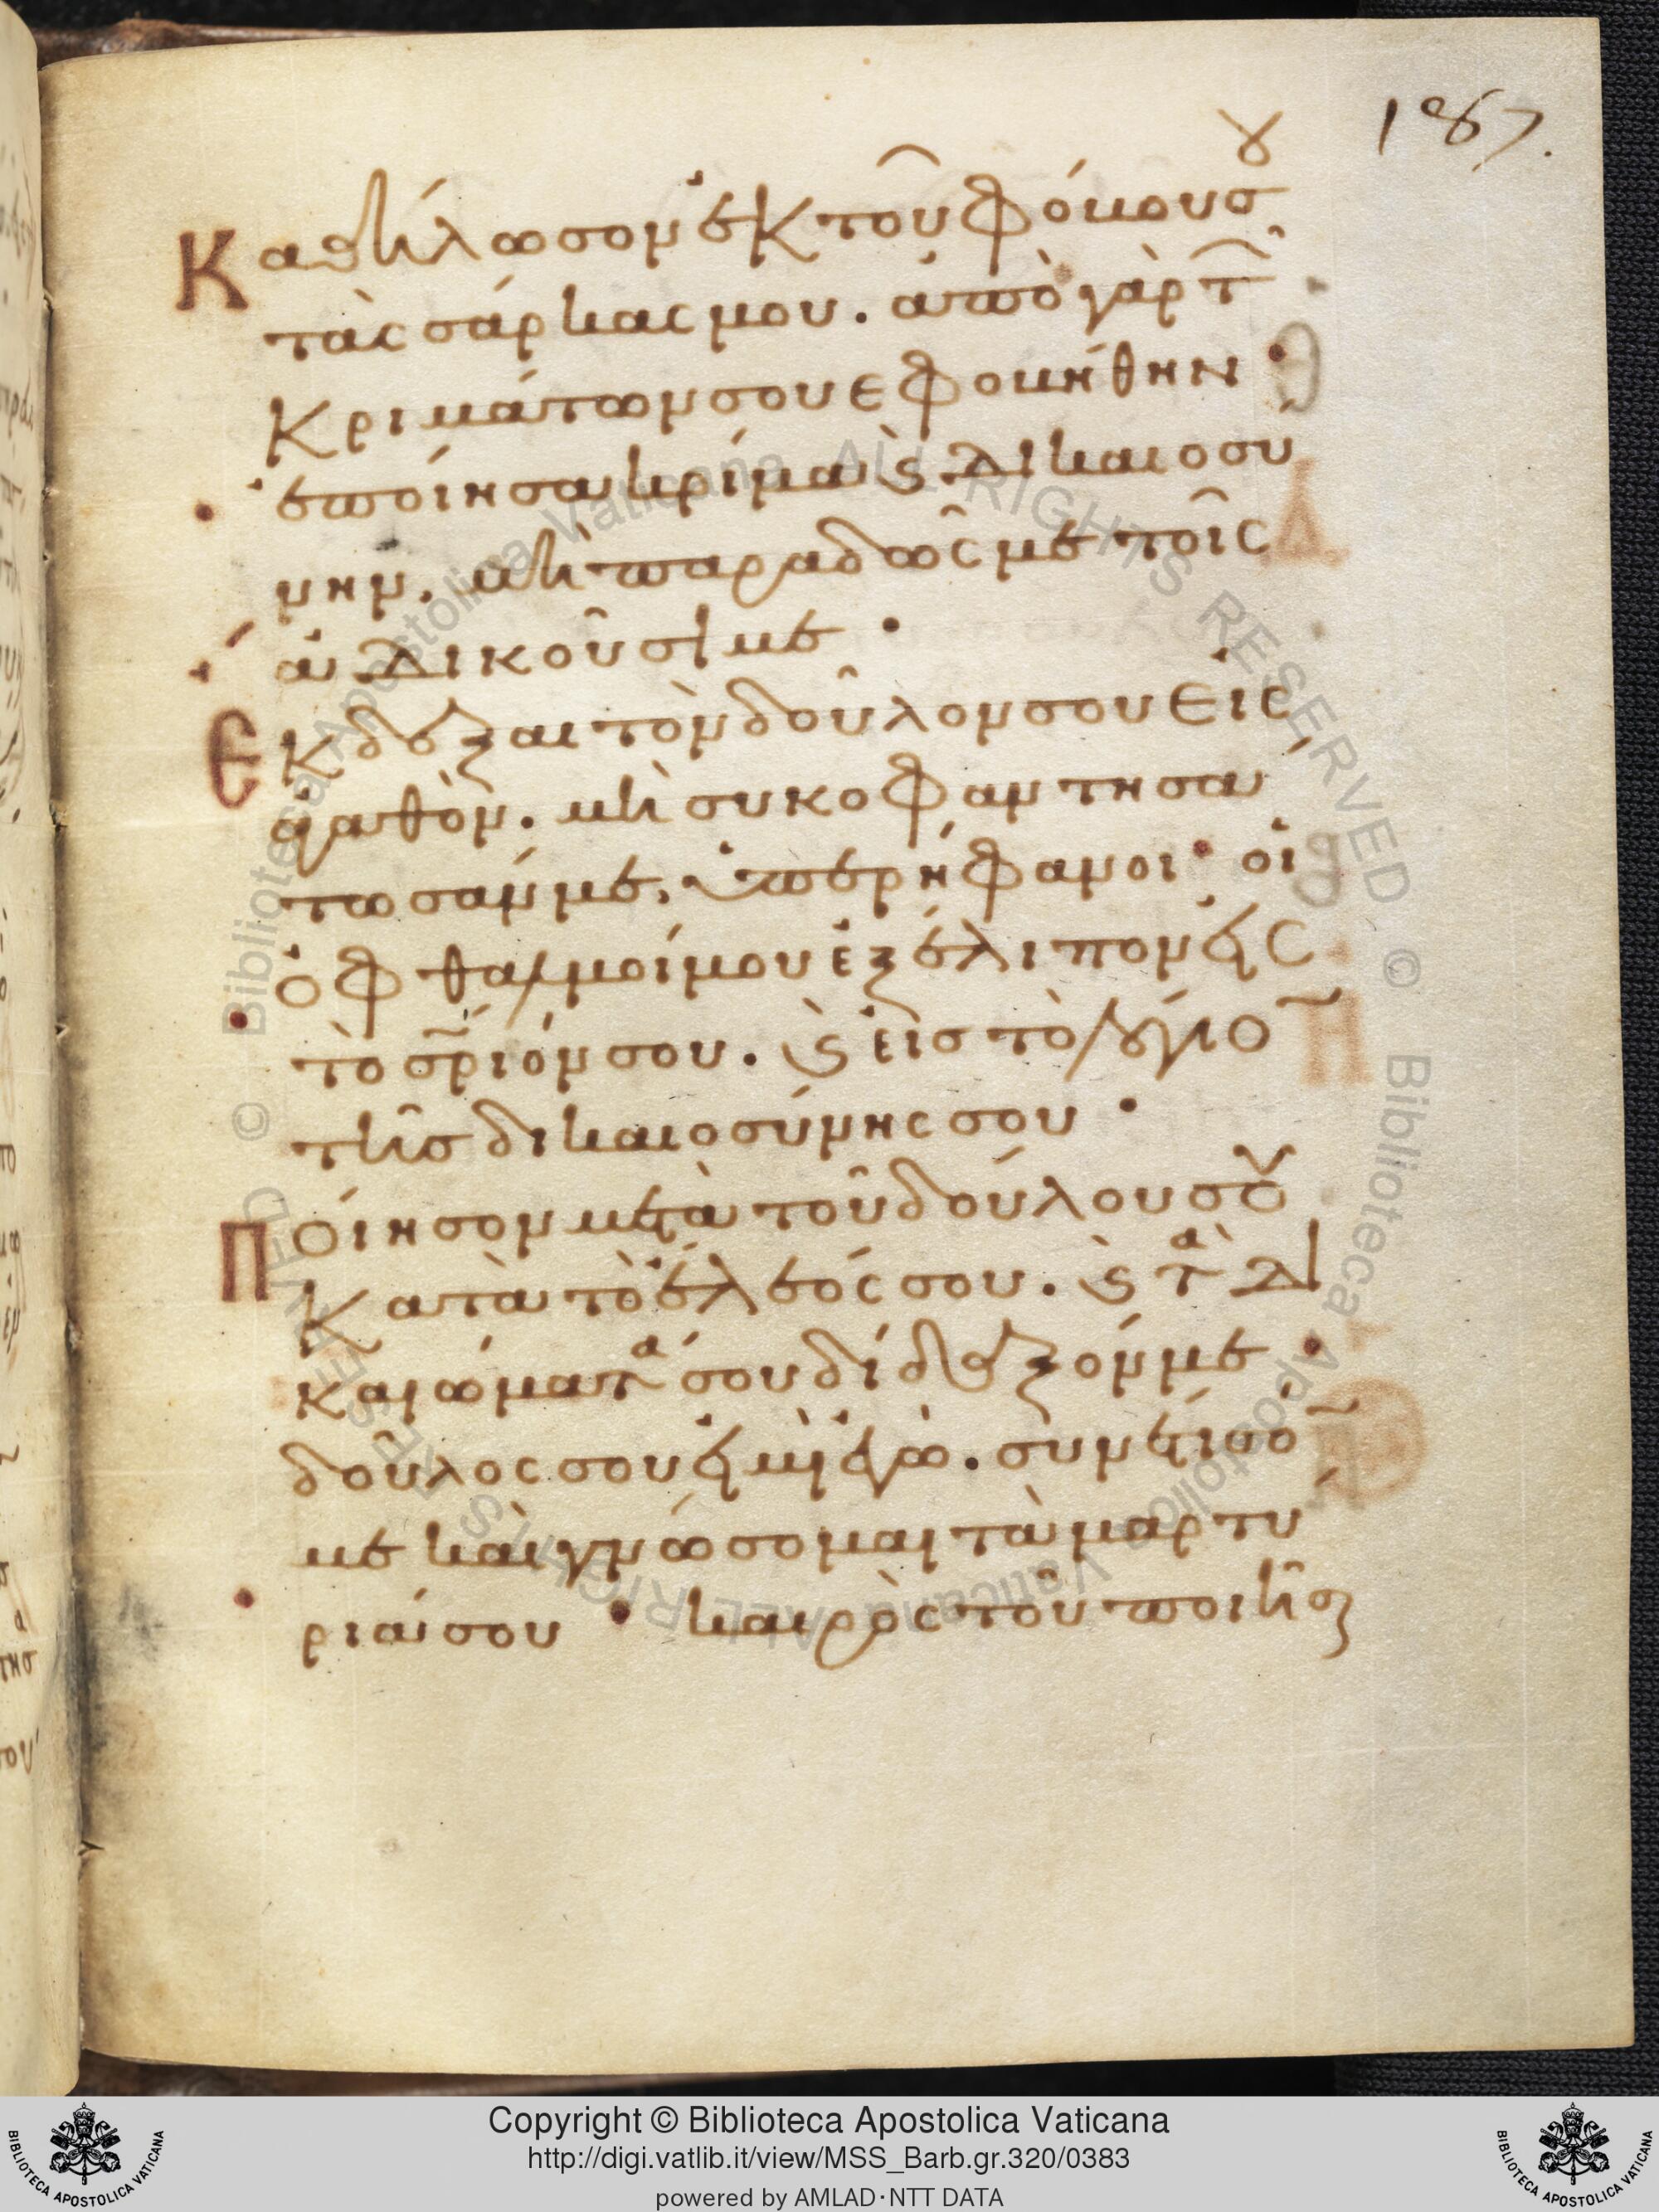 187.
Καθήλωσον ἐκ τοῦ φόβου σου
τὰς σάρκας μου. ἀπὸ γὰρ τῶν
κριμάτων σου εφοβήθην·
ἐποίησα κρίμα καὶ δικαιοσύ
νην. μὴ παραδῶς με τοῖς
ἀδικοῦσί με·
Ἔκδεξαι τὸν δοῦλον σου εἰς
ἀγαθόν. μὴ συκοφαντησά
τωσάν με ὑπερήφανοι· οἱ
ὀφθαλμοί μου ἐξέλιπον εἰς
τὸ σριόν σου. καὶ εἰς τὸ λόγιον
τῆς δικαιοσύνης σου·
Ποίησον μετὰ τοῦ δούλου σου
κατὰ τὸ ἔλεός σου. καὶ τὰ δι
καιώματά σου δίδαξόν με·
δοῦλος σου εἰμὶ ἐγώ. συνέτισόν
με καὶ γνώσομαι τὰ μαρτύ
ριά σου· καιρὸς τοῦ ποιῆσαι
Copyright © Biblioteca Apostolica Vaticana
http://digi.vatlib.it/view/MSS_Barb.gr.320/0383
powered by AMLAD·NTT DATA